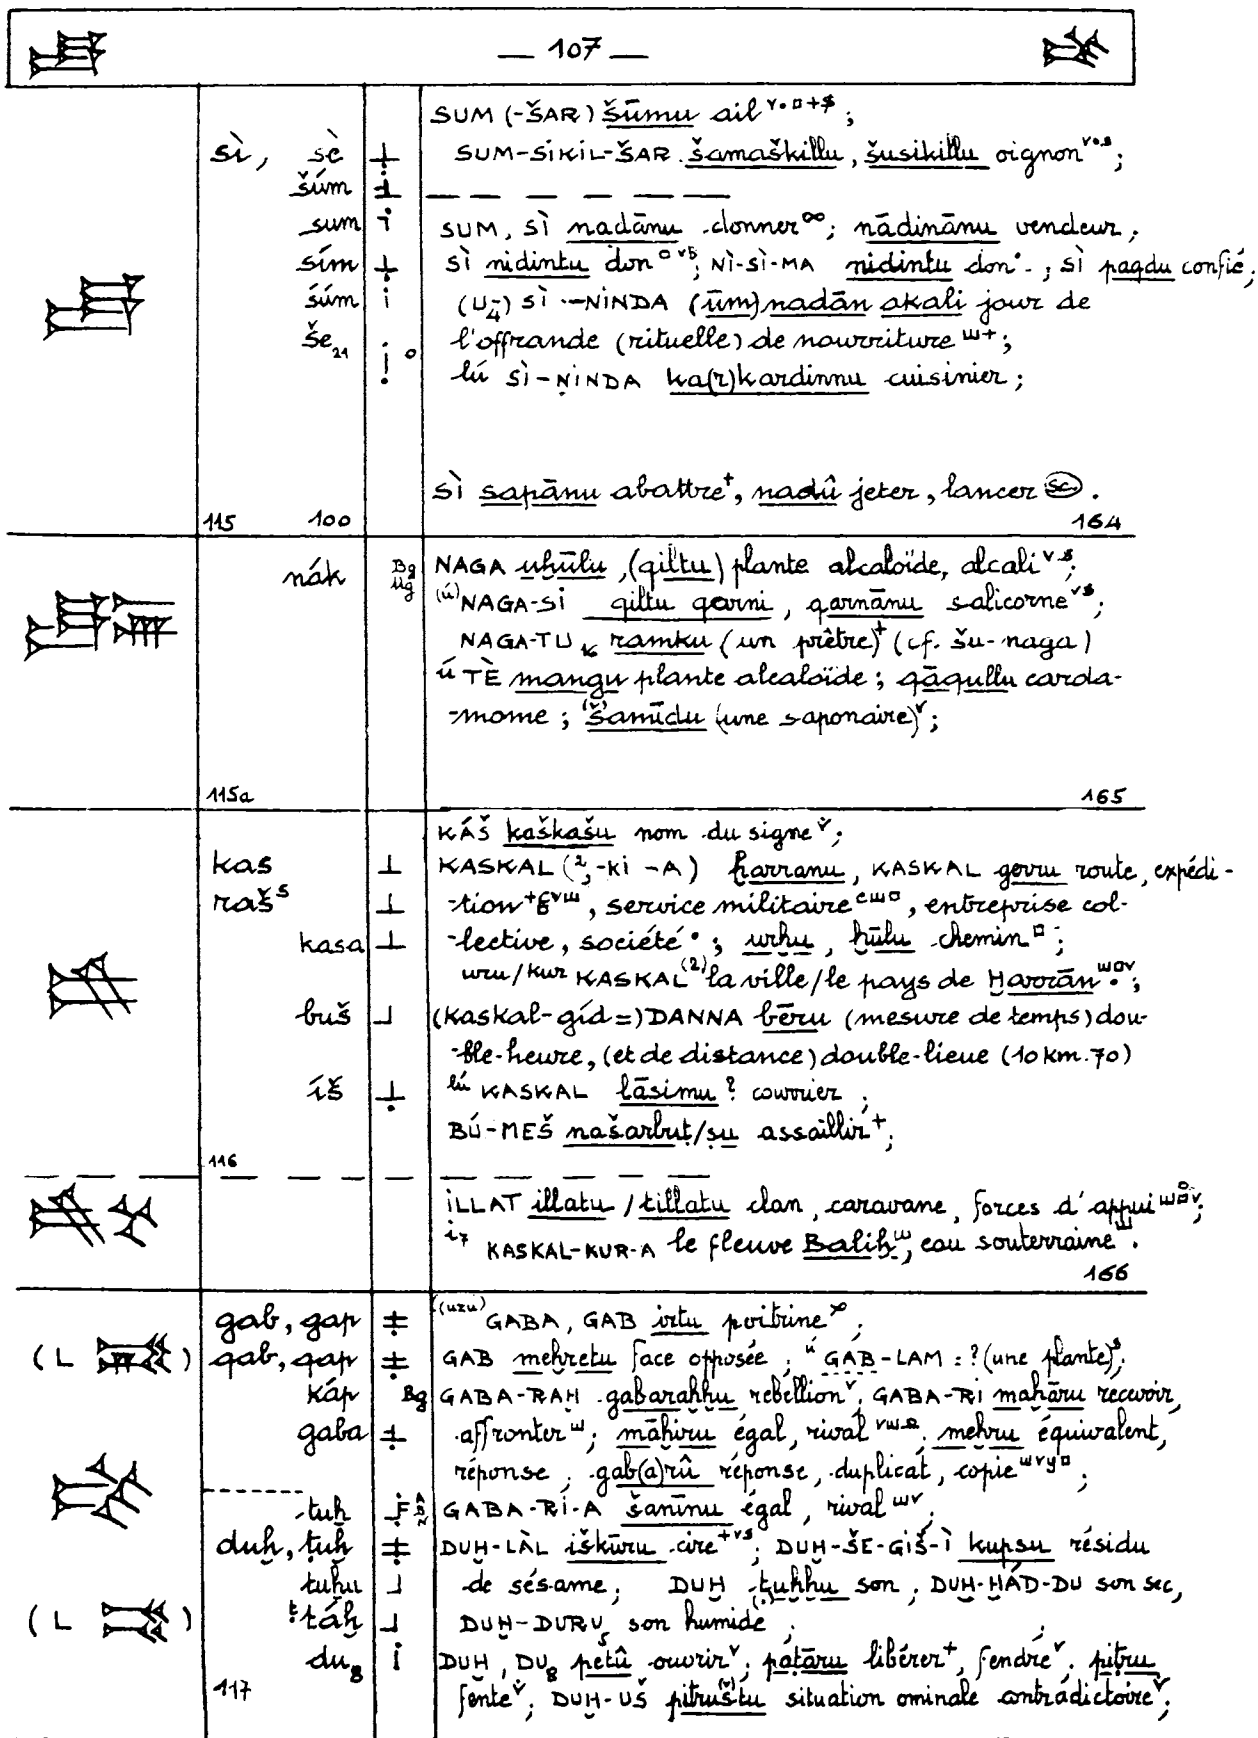 — 107 —
SUM (-ŠAR) šūmu ail ;
sì, sè SUM-SIKIL-ŠAR šamaškillu, šusikillu oignon ;
šúm
sum SUM, SÌ nadānu donner ∞; nādinānu vendeur ;
sím SÌ nidintu don ; NÌ-SÌ-MA nidintu don ; SÌ paqdu confié,
śúm (U₄) SÌ -NINDA (ūm) nadān akali jour de
še₂₁ l'offrande (rituelle) de nourriture ;
lú SÌ-NINDA ka(r)kardinnu cuisinier ;
SÌ sapānu abattre⁺, nadû jeter, lancer .
115 100 164
nák Bg Ug NAGA uḫūlu, (qiltu) plante alcaloïde, alcali ;
(ú) NAGA-SI qiltu qarni, qarnānu salicorne ;
NAGA-TU ramku (un prêtre)⁺ (cf. šu-naga)
ú TÈ mangu plante alcaloïde ; qāqullu carda-
mome ; (š)samīdu (une saponaire)ᵛ ;
115a 165
KÁŠ kaškašu nom du signeᵛ ;
kas KASKAL (², -KI -A) ḫarranu, KASKAL gerru route, expédi-
raš⁵ tion , service militaire , entreprise col-
kasa lective, société ; urḫu, ḫūlu chemin ;
uru/kur KASKAL⁽²⁾ la ville/le pays de Ḫarrān ;
buš (kaskal-gíd=) DANNA bēru (mesure de temps) dou-
ble-heure, (et de distance) double-lieue (10 km.70)
íš lú KASKAL lāsimu ? courrier ;
BÚ-MEŠ našarbuṭ/ṣu assaillir⁺ ;
116
ILLAT illatu / tillatu clan, caravane, forces d'appui ;
i₇ KASKAL-KUR-A le fleuve Baliḫ, eau souterraine .
166
gab, gap ((uzu) GABA, GAB irtu poitrine ;
(L ) qab, qap GAB meḫretu face opposée ; ú GÁB-LAM : ? (une plante) ;
káp Bg GABA-RAḪ gabaraḫḫu rébellionᵛ, GABA-RI maḫāru recevoir,
gaba affronter ; māḫiru égal, rival , meḫru équivalent,
réponse ; gab(a)rû réponse, duplicat, copie ;
tuḫ GABA-RÍ-A šanīnu égal, rival ;
duḫ, ṭuḫ DUḪ-LÀL iškūru cire ; DUḪ-ŠE-GIŠ-Ì kupsu résidu
tuḫu de sésame ; DUḪ tuḫḫu son ; DUḪ-ḪÁD-DU son sec,
táḫ (L ) DUḪ-DURU₅ son humide ;
du₈ DUḪ, DU₈ petû ouvrirᵛ ; paṭāru libérer⁺, fendreᵛ ; piṭru
117 fenteᵛ ; DUḪ-UŠ piṭruštu situation ominale contradictoireᵛ ;